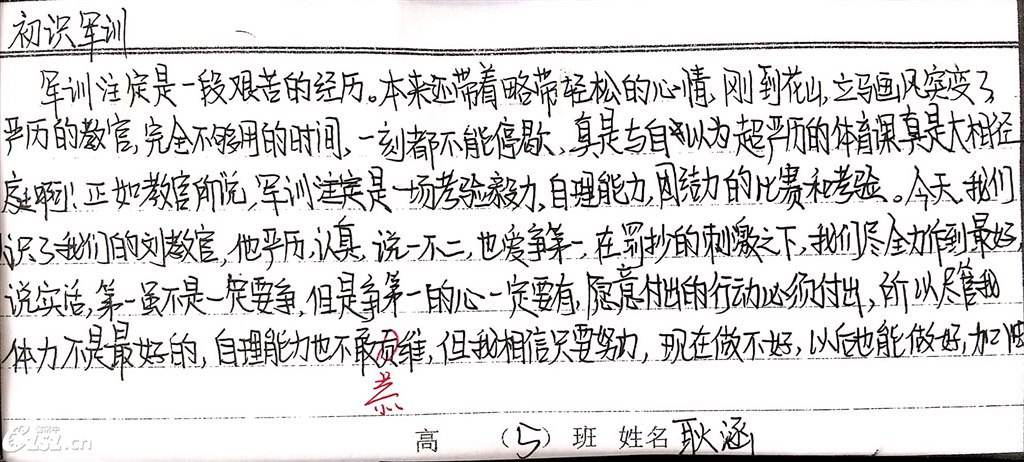 初识军训
军训注定是一段艰苦的经历。本来还带着略带轻松的心情,刚到花山,立马画风突变了,
严历的教官,完全不够用的时间,一刻都不能停歇,真是与自以为超严历的体育课真是大相径
庭啊!正如教官所说,军训注定是一场考验毅力,自理能力,团结力的比赛和考验。今天,我们
识了我们的刘教官,他严历,认真,说一不二,也爱争第一,在罚抄的刺激之下,我们尽全力作到最好,
说实话,第一虽不是一定要争,但是争第一的心一定要有,愿意付出的行动必须付出,所以尽管我
体力不是最好的,自理能力也不敢恭维,但我相信只要努力,现在做不好,以后也能做好,加油
恭
高 (5) 班 姓名 耿涵
151.cn